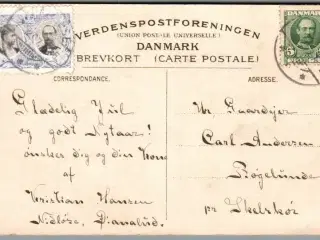 VERDENSPOSTFORENINGEN
(UNION POSTALE UNIVERSELLE)
DANMARK
BREVKORT (CARTE POSTALE)
DANMARK
5
CORRESPONDANCE.
ADRESSE.
Glædelig Jul
og godt Nytaar!
ønskes dig og din Kone
af
Kristian Hansen
Nidløse, Dianalund.
Hr. Gaardejer
Carl Andersen
Bøgelunde
pr Skelskør